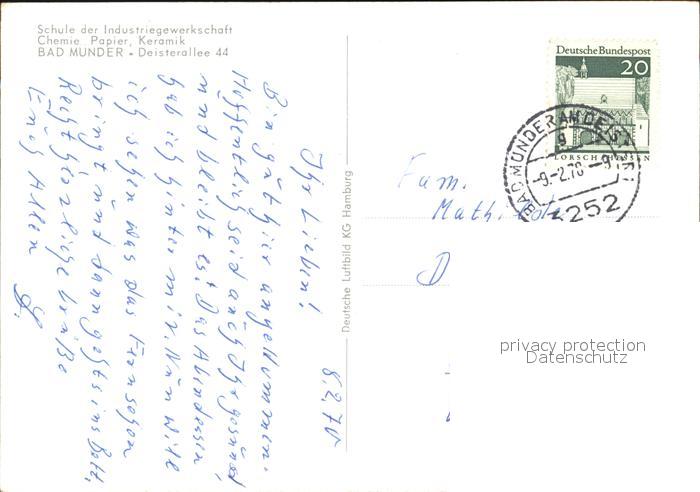 Schule der Industriegewerkschaft
Chemie Papier, Keramik
BAD MÜNDER - Deisterallee 44
8.2.70
Ihr Lieben!
Bin gut hier angekommen.
Hoffentlich seid auch Ihr gesund
und bleibt es! Das Abendessen
hab ich hinter mir. Nun will
ich sehen was das Fernsehen
bringt und dann geht's ins Bett.
Recht herzliche Grüße
Euch Allen
Deutsche Luftbild KG Hamburg
Deutsche Bundespost
20
LORSCH HESSEN
BAD MÜNDER AM DEISTER
-9.-2.70 -9
3252
Fam.
Math.
D
privacy protection
Datenschutz